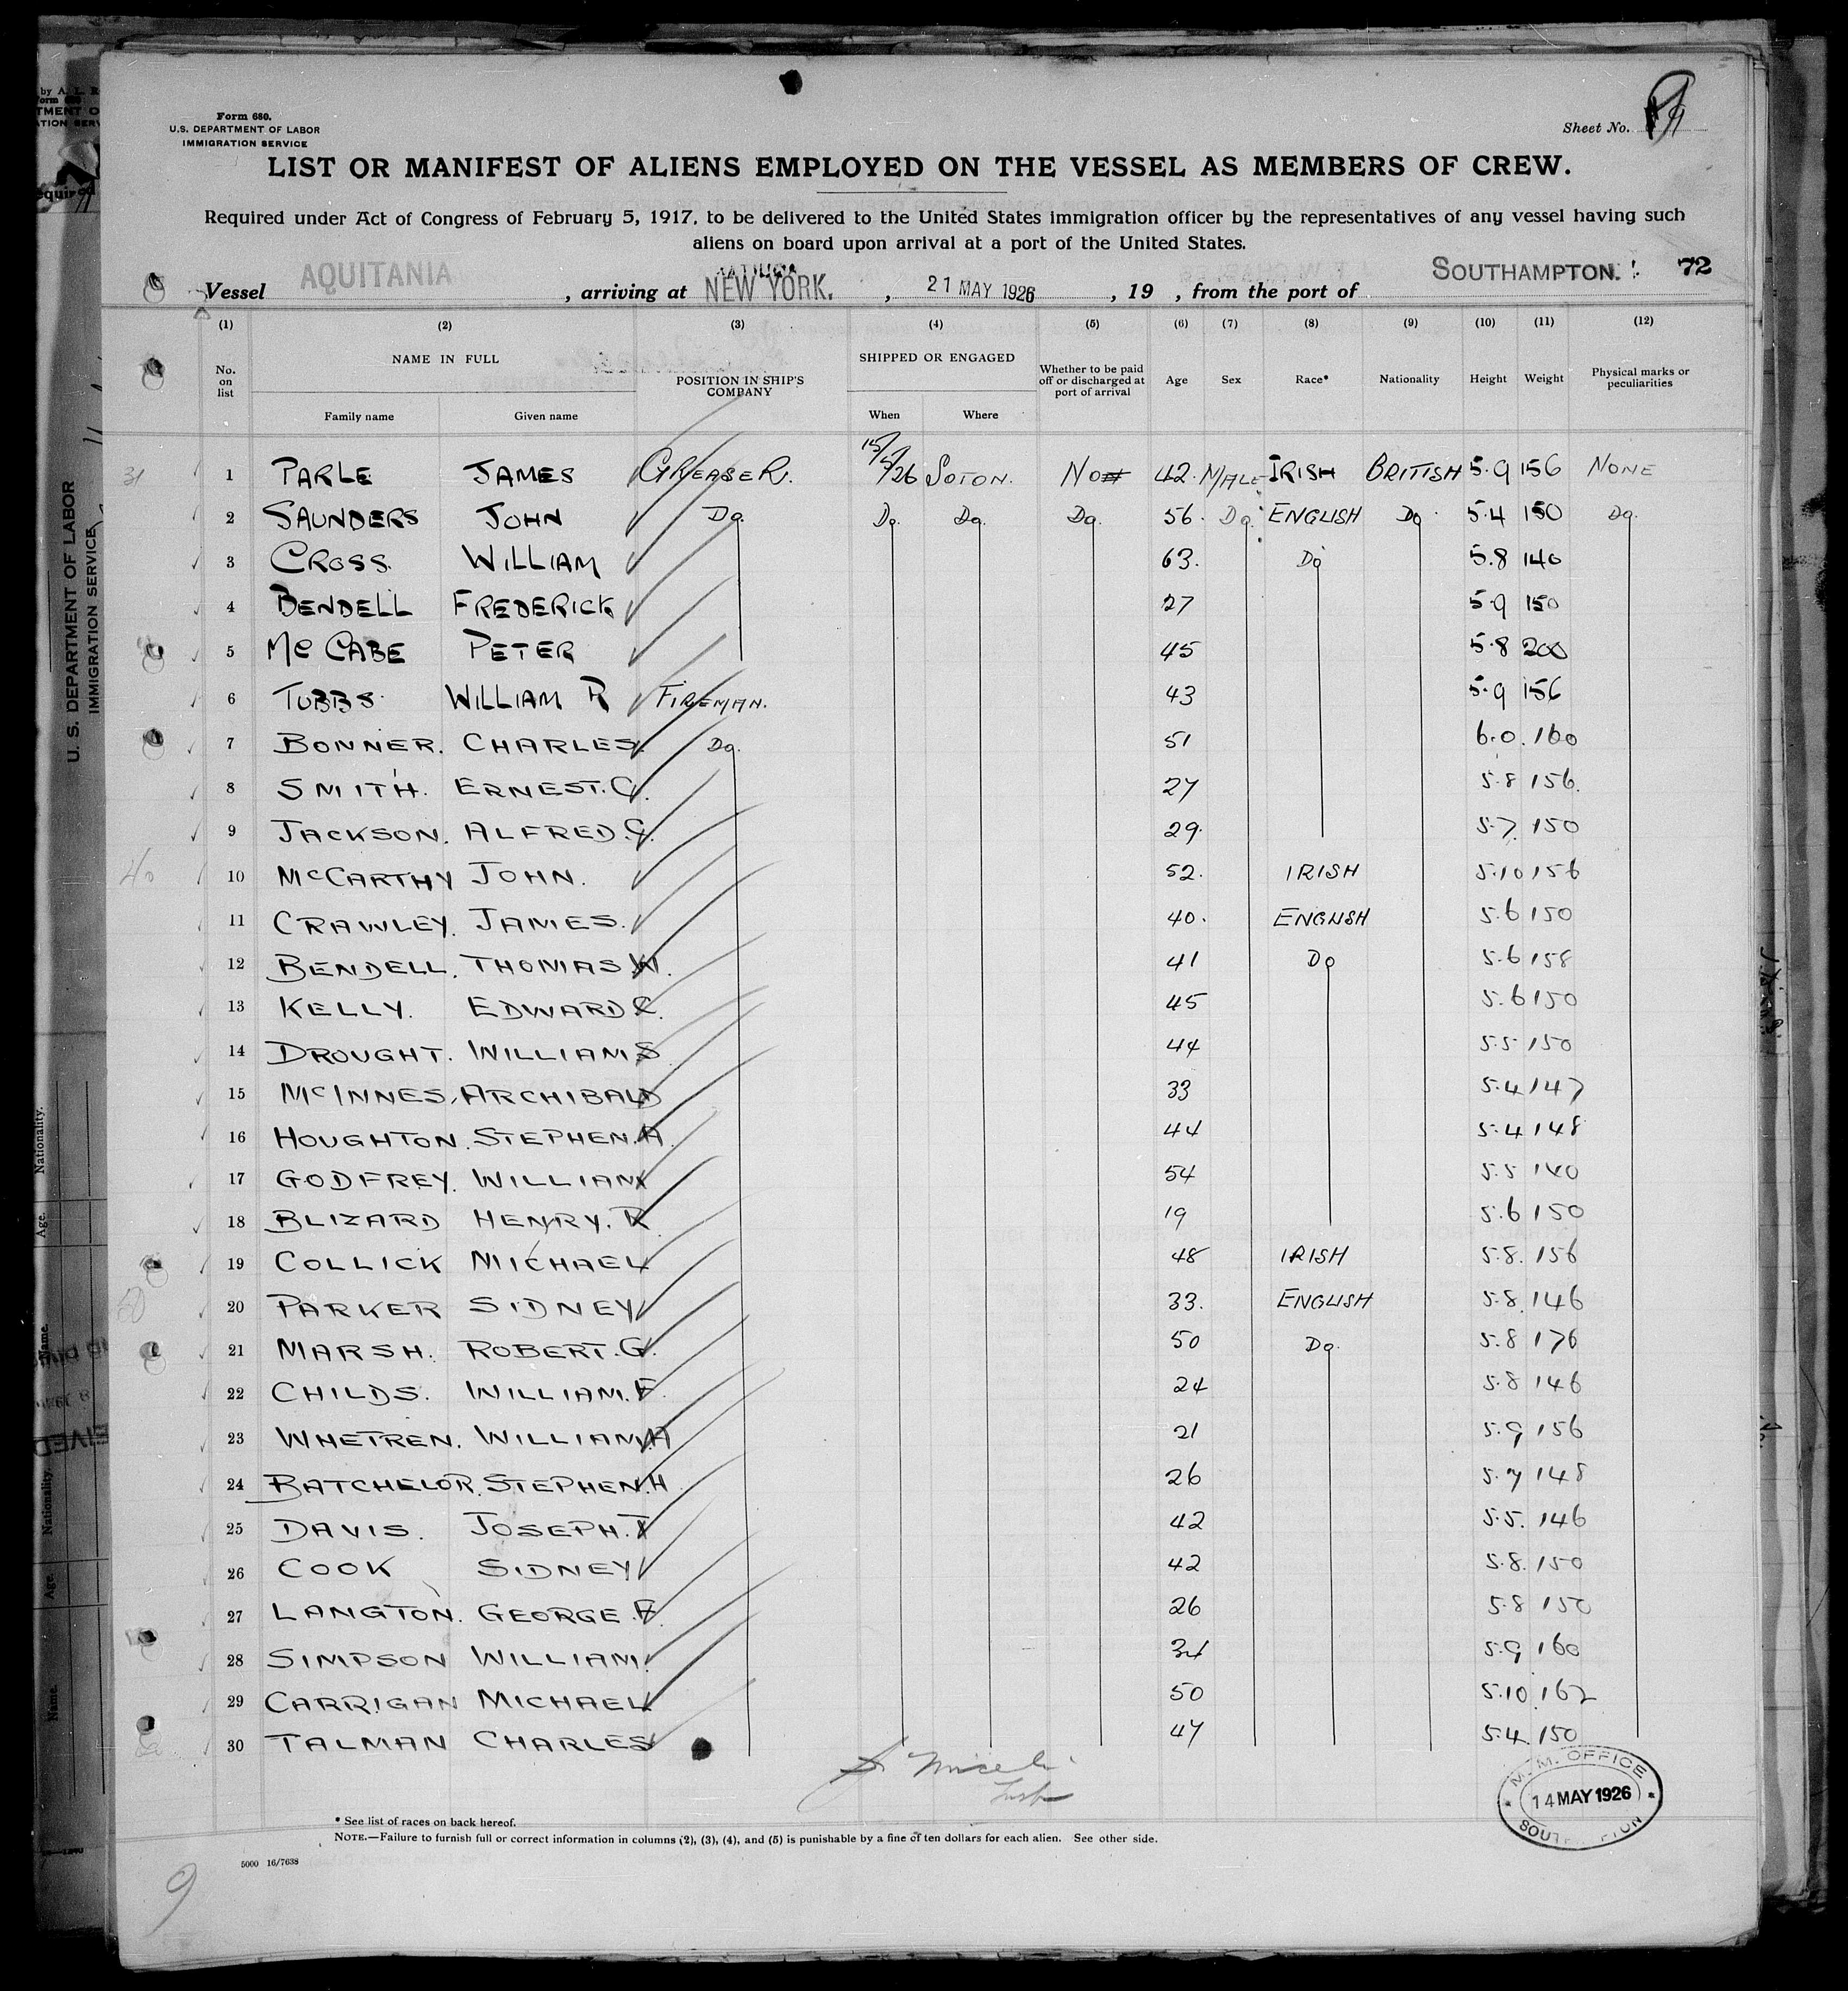 Form 680.
U.S. DEPARTMENT OF LABOR
IMMIGRATION SERVICE
Sheet No.
LIST OR MANIFEST OF ALIENS EMPLOYED ON THE VESSEL AS MEMBERS OF CREW.
Required under Act of Congress of February 5, 1917, to be delivered to the United States immigration officer by the representatives of any vessel having such
aliens on board upon arrival at a port of the United States.
Vessel AQUITANIA , arriving at NEW YORK. , 21 MAY 1926 , 19 , from the port of SOUTHAMPTON. 72
(1) (2) (3) (4) (5) (6) (7) (8) (9) (10) (11) (12)
No. on list NAME IN FULL Family name Given name POSITION IN SHIP'S COMPANY SHIPPED OR ENGAGED When Where Whether to be paid off or discharged at port of arrival Age Sex Race* Nationality Height Weight Physical marks or peculiarities
31 1 PARLE JAMES GREASER. 15/5/26 SOTON. NO 42. MALE IRISH BRITISH 5.9 156 NONE
2 SAUNDERS JOHN Do. Do. Do. Do. 56. Do. ENGLISH Do. 5.4 150 Do.
3 CROSS. WILLIAM 63. Do 5.8 140
4 BENDELL FREDERICK 27 5.9 150
5 Mc CABE PETER 45 5.8 200
6 TUBBS. WILLIAM R FIREMAN. 43 5.9 156
7 BONNER. CHARLES. Do. 51 6.0. 160
8 SMITH. ERNEST. C. 27 5.8 156.
9 JACKSON. ALFRED. G. 29. 5.7. 150
40 10 McCARTHY JOHN. 52. IRISH 5.10 156
11 CRAWLEY. JAMES. 40. ENGLISH 5.6 150
12 BENDELL. THOMAS W. 41 Do 5.6 158
13 KELLY. EDWARD C. 45 5.6 150
14 DROUGHT. WILLIAM S 44 5.5 150
15 McINNES. ARCHIBALD 33 5.4 147
16 HOUGHTON. STEPHEN. A. 44 5.4 148
17 GODFREY. WILLIAM 54 5.5 140
18 BLIZARD HENRY. R 19 5.6 150
19 COLLICK MICHAEL 48 IRISH 5.8. 156
50 20 PARKER SIDNEY 33. ENGLISH 5.8. 146
21 MARSH. ROBERT. G. 50 Do. 5.8 176
22 CHILDS. WILLIAM. F. 24 5.8 146
23 WHETREN. WILLIAM. A 21 5.9 156
24 BATCHELOR. STEPHEN. H 26 5.7 148
25 DAVIS. JOSEPH. T 42 5.5. 146
26 COOK SIDNEY 42 5.8. 150
27 LANGTON. GEORGE. 26 5.8 150
28 SIMPSON WILLIAM. 34 5.9 160
29 CARRIGAN MICHAEL 50 5.10. 162
30 TALMAN CHARLES 47 5.4. 150
M. M. OFFICE
14 MAY 1926
* See list of races on back hereof.
NOTE.—Failure to furnish full or correct information in columns (2), (3), (4), and (5) is punishable by a fine of ten dollars for each alien. See other side.
5000 16/7638
9
U. S. DEPARTMENT OF LABOR
IMMIGRATION SERVICE
Nationality.
Age.
Name.
Nationality.
Age.
Name.